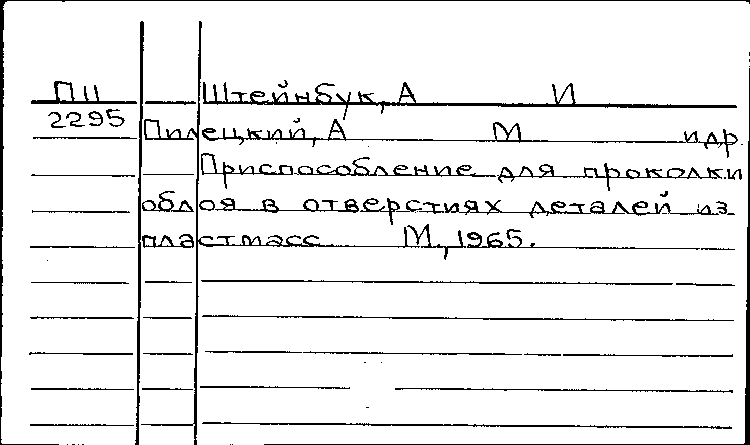 ПII Штейнбук, А И
2295 Пилецкий, А М и др
Приспособление для проколки
облоя в отверстиях деталей из
пластмасс М., 1965.